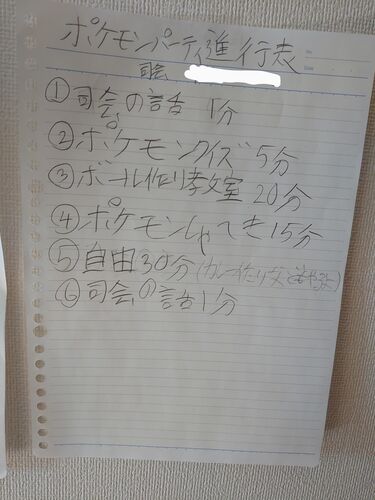 ポケモンパーティ進行表
司会
①司会の話 1分
②ポケモンクイズ 5分
③ボール作り教室 20分
④ポケモンしゃてき 15分
⑤自由30分(カレー作り
⑥司会の話1分